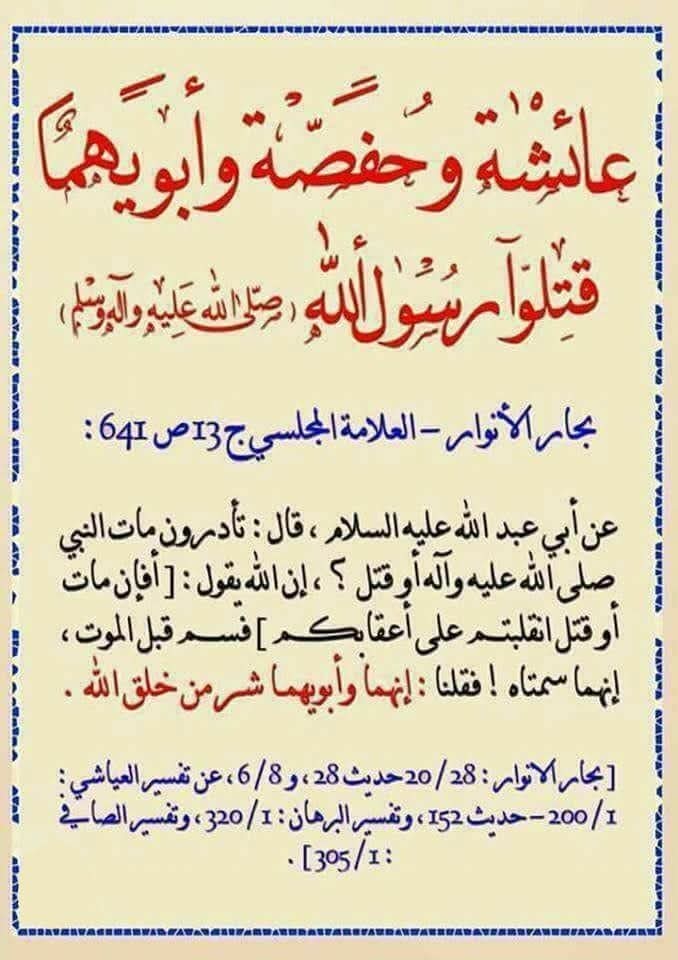 عائشة وحفصة وأبويهما
قتلوا رسول الله (صلى الله عليه وآله وسلم)
بحار الأنوار – العلامة المجلسي ج 13 ص 641 :
عن أبي عبد الله عليه السلام ، قال : تأدرون مات النبي
صلى الله عليه وآله أو قتل ؟ ، إن الله يقول : [ أفإن مات
أو قتل انقلبتم على أعقابكم ] فسم قبل الموت ،
إنهما سمتاه ! فقلنا : إنهما وأبويهما شر من خلق الله .
[ بحار الانوار : 28 / 20 حديث 28 ، و 8 / 6 ، عن تفسير العياشي :
1 / 200 – حديث 152 ، وتفسير البرهان : 1 / 320 ، وتفسير الصافي
: 1 / 305 ] .